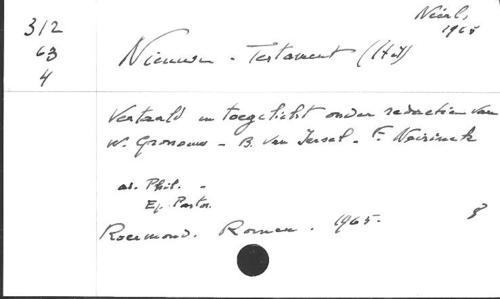 312
63
4
Néerl.
1965
Nieuwe - Testament (Het)
Vertaald en toegelicht onder redactie van
W. Grossouw - B. van Iersel - F. Neirinck
ad. Phil. -
Ep. Pastor.
Roermond. Romen. 1965.